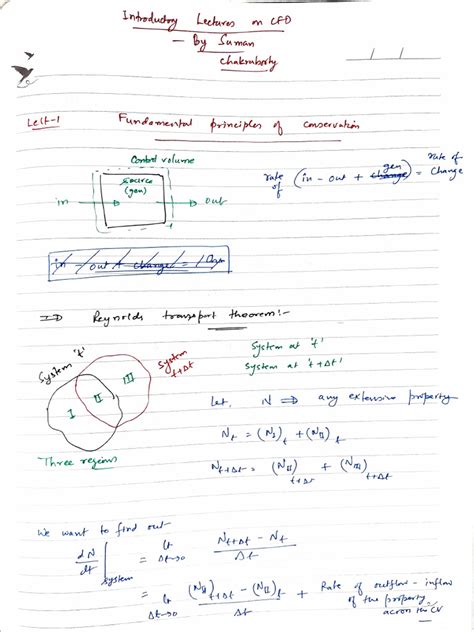 Introductory Lectures on CFD
- By Suman
Chakraborty
Lect-1 Fundamental principles of conservation
Control volume
source
(gen)
in
out
rate of (in - out + change gen) = rate of Change
in - out + change = 
II) Reynolds transport theorem:-
System 't'
System t+Δt
I
II
III
Three regions
System at 't'
System at 't+Δt'
Let, N ⇒ any extensive property
N_t = (N_I)_t + (N_II)_t
N_t+Δt = (N_II)_t+Δt + (N_III)_t+Δt
We want to find out
dN/dt |system = lt Δt→0 (N_t+Δt - N_t)/Δt
= lt Δt→0 ((N_II)_t+Δt - (N_II)_t)/Δt + Rate of outflow - inflow
of the property
across the CV